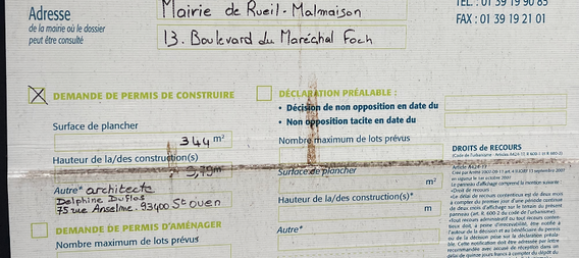 Adresse
de la mairie où le dossier
peut être consulté
Mairie de Rueil-Malmaison
13. Boulevard du Maréchal Foch
TEL. : 01 39 19 90 85
FAX : 01 39 19 21 01
DEMANDE DE PERMIS DE CONSTRUIRE
Surface de plancher
344 m²
Hauteur de la/des construction(s)
9,79m
Autre* architecte
Delphine Duflos
75 rue Anselme. 93400 St ouen
DEMANDE DE PERMIS D'AMÉNAGER
Nombre maximum de lots prévus
DÉCLARATION PRÉALABLE :
• Décision de non opposition en date du
• Non opposition tacite en date du
Nombre maximum de lots prévus
Surface de plancher
m²
Hauteur de la/des construction(s)*
m
Autre*
DROITS de RECOURS
Article A424-17
• Droit de recours